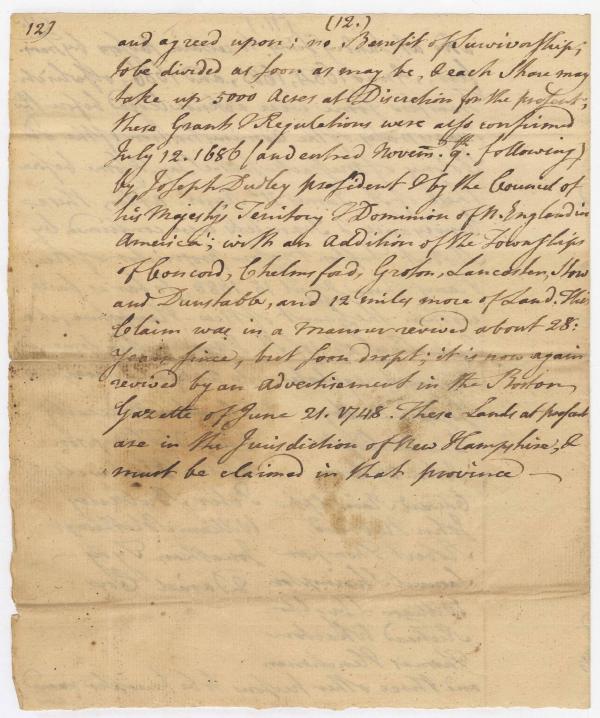 12) (12.)
and agreed upon; no Benefit of Survivorship;
to be divided as soon as may be, & each Share may
take up 5000 Acres at Discretion for the present;
these Grants & Regulations were also confirmed
July 12. 1686 (and entred Novem. 9th. following)
by Joseph Dudley president & by the Council of
his Majestys Territory & Dominion of N. England in
America; with an Addition of the Townships
of Concord, Chelmsford, Groton, Lancaster, Stow
and Dunstable, and 12 miles more of Land. This
Claim was in a manner revived about 28:
Years since, but soon dropt; it is now again
revived by an advertisement in the Boston
Gazette of June 21. 1748. These Lands at present
are in the Jurisdiction of New Hampshire, &
must be claimed in that province —